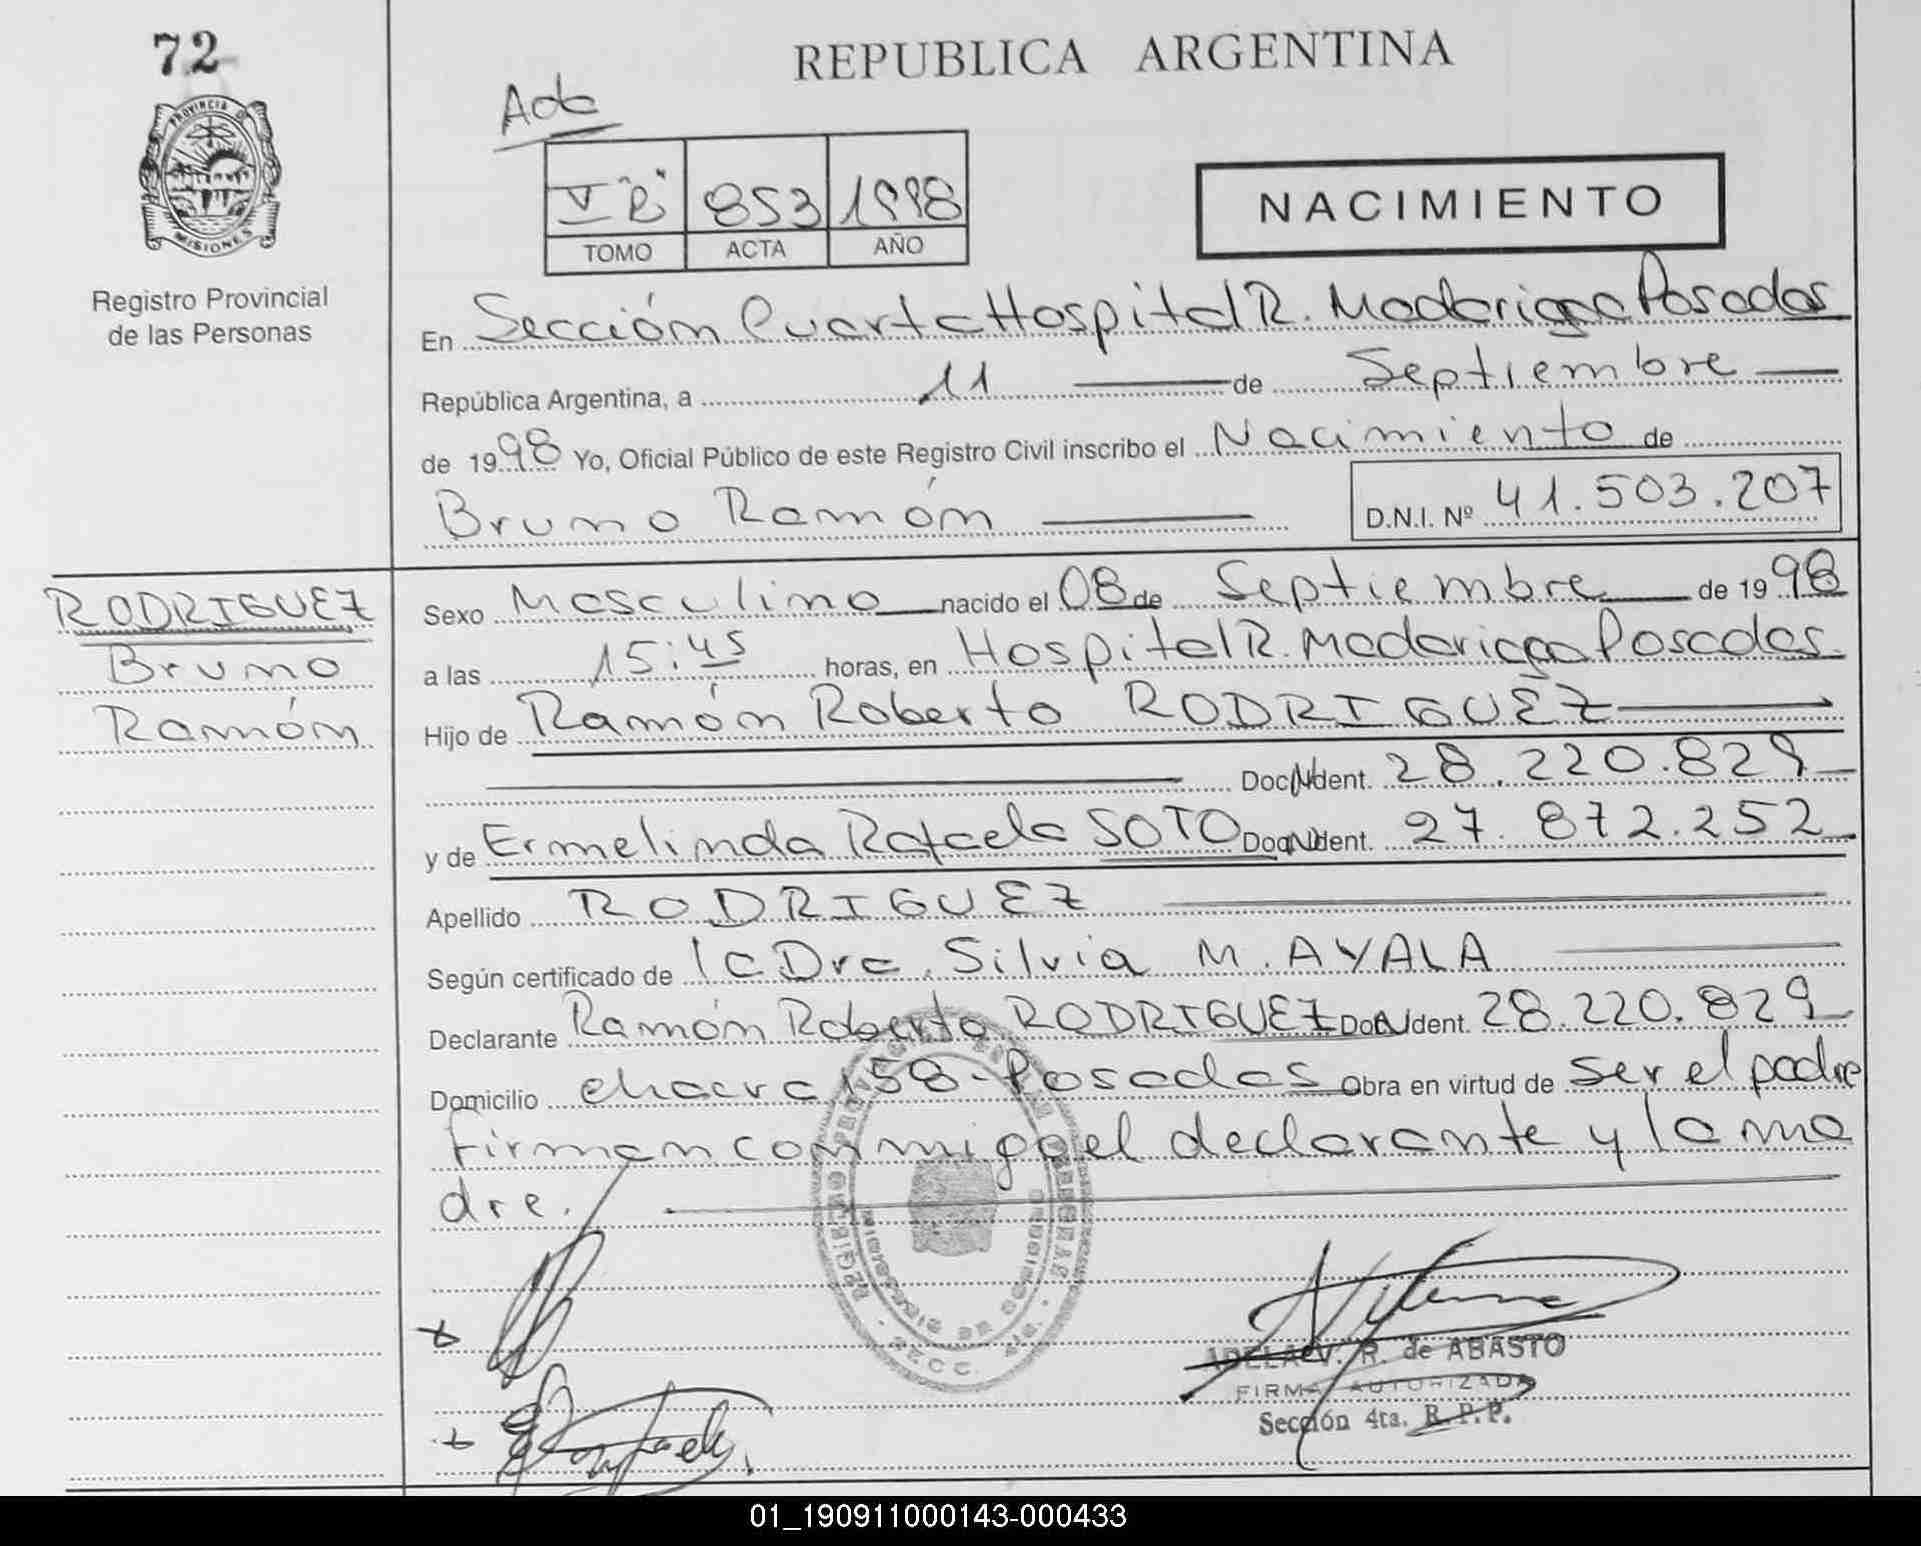 72
REPUBLICA ARGENTINA
Acta
PROVINCIA DE
MISIONES
Registro Provincial
de las Personas
V "R" 853 1998
TOMO ACTA AÑO
NACIMIENTO
En Sección Cuarta Hospital R. Madariaga Posadas
República Argentina, a 11 de Septiembre
de 1998 Yo, Oficial Público de este Registro Civil inscribo el Nacimiento de
Bruno Ramón D.N.I. Nº 41.503.207
RODRIGUEZ
Bruno
Ramón
Sexo Masculino nacido el 08 de Septiembre de 1998
a las 15:45 horas, en Hospital R. Madariaga Posadas.
Hijo de Ramón Roberto RODRIGUEZ
Doc. Ident. 28.220.829
y de Ermelinda Rafaela SOTO Doc. Ident. 27.872.252
Apellido RODRIGUEZ
Según certificado de la Dra. Silvia M. AYALA
Declarante Ramón Roberto RODRIGUEZ Doc. Ident. 28.220.829
Domicilio chacra 158-Posadas Obra en virtud de ser el padre
firman conmigo el declarante y la ma
dre.
REGISTRO PROVINCIAL DE LAS PERSONAS
ADELA V. R. de ABASTO
FIRMA AUTORIZADA
Sección 4ta. R.P.P.
01_190911000143-000433